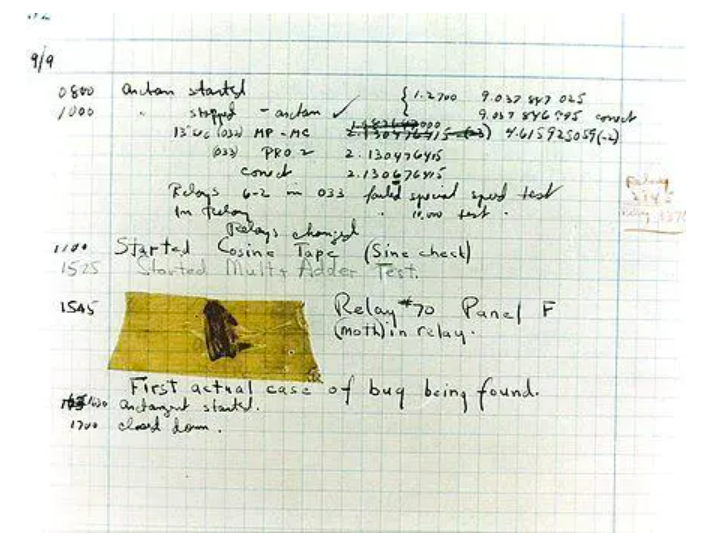 9/9
0800 arctan started { 1.2700 9.037 847 025
1000 " stopped - arctan ✓ 9.037 846 795 correct
13"UC (032) MP - MC 2.130476415 (-3) 4.615925059(-2)
(033) PRO 2 2.130476415
correct 2.130676415
Relays 6-2 in 033 failed special speed test
In Relay " 11,000 test .
Relays changed
1100 Started Cosine Tape (Sine check)
1525 Started Mult + Adder Test.
1545 Relay #70 Panel F
(moth) in relay.
First actual case of bug being found.
1630 arctangent started.
1700 closed down.